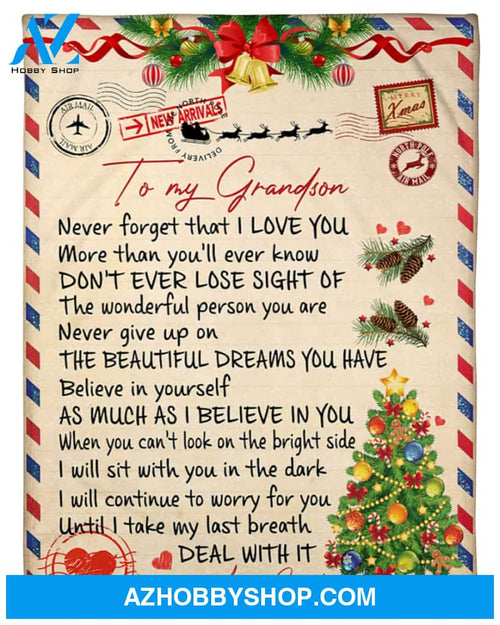 AZ
HOBBY SHOP
AIR MAIL
AIR MAIL
NEW ARRIVALS
DELIVERY FROM THE NORTH
MERRY
Xmas
NORTH POLE
AIR MAIL
To my Grandson
Never forget that I LOVE YOU
More than you'll ever know
DON'T EVER LOSE SIGHT OF
The wonderful person you are
Never give up on
THE BEAUTIFUL DREAMS YOU HAVE
Believe in yourself
AS MUCH AS I BELIEVE IN YOU
When you can't look on the bright side
I will sit with you in the dark
I will continue to worry for you
Until I take my last breath
DEAL WITH IT
AZHOBBYSHOP.COM